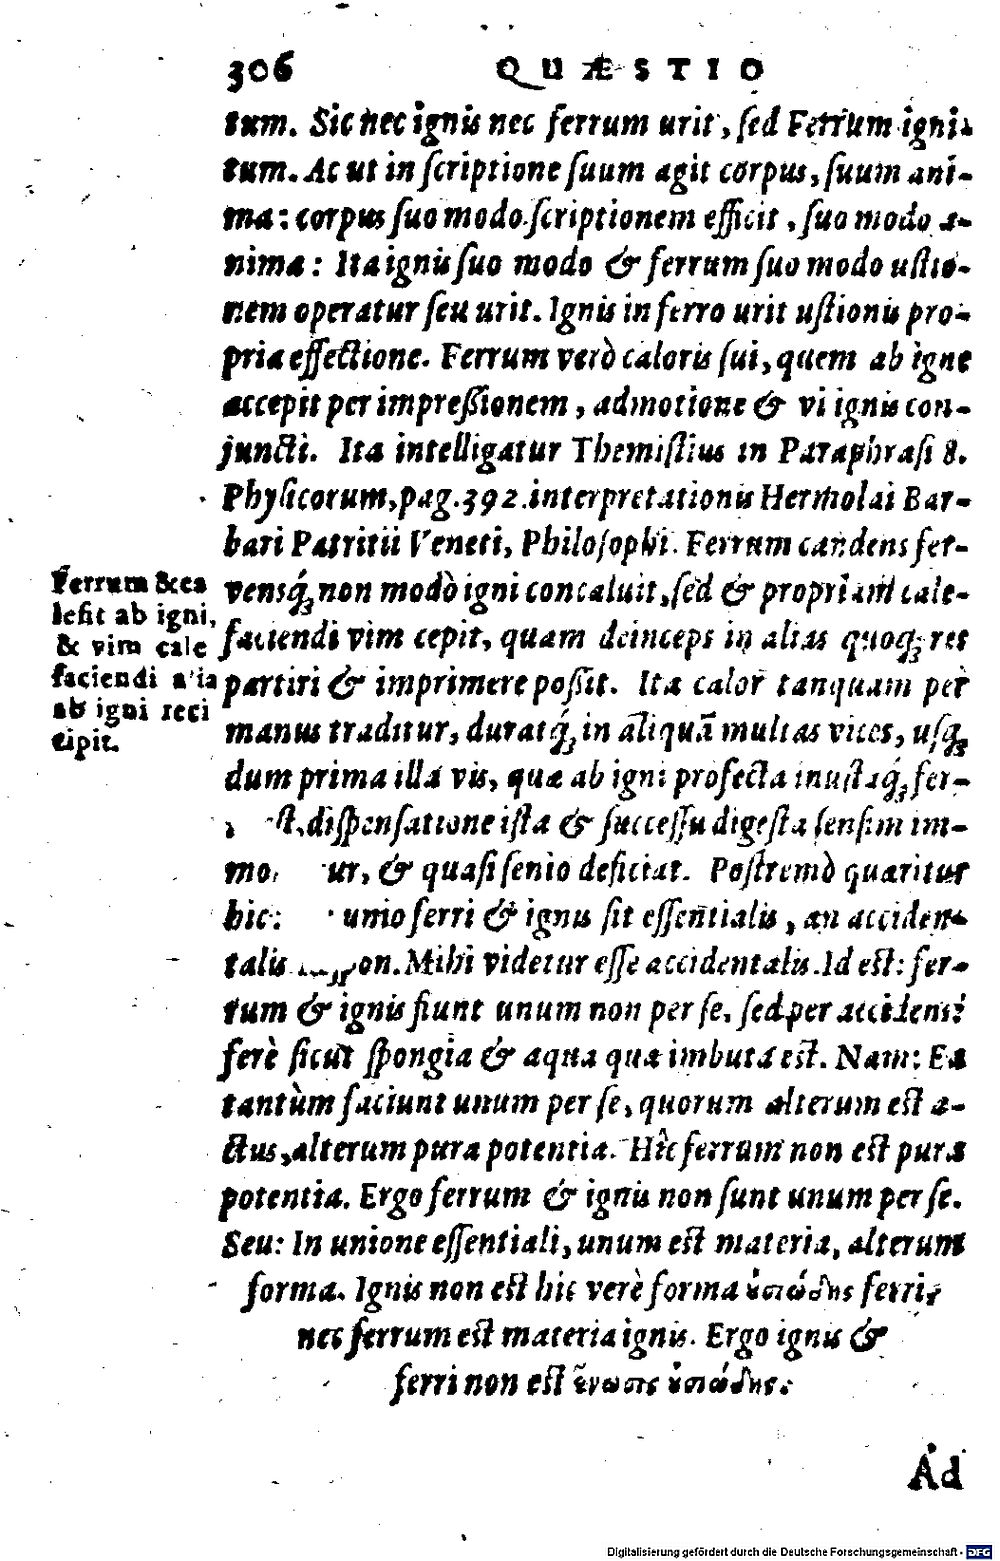 306 QUÆSTIO
tum. Sic nec ignis nec ferrum urit, sed Ferrum igni-
tum. Ac ut in scriptione suum agit corpus, suum ani-
ma: corpus suo modo scriptionem efficit, suo modo a-
nima: Ita ignis suo modo & ferrum suo modo ustio-
nem operatur seu urit. Ignis in ferro urit ustionis pro-
pria effectione. Ferrum verò caloris sui, quem ab igne
accepit per impressionem, admotione & vi ignis con-
juncti. Ita intelligatur Themistius in Paraphrasi 8.
Physicorum, pag. 392. interpretationis Hermolai Bar-
bari Patritii Veneti, Philosophi. Ferrum candens fer-
vensq́;, non modò igni concaluit, sed & propriam cale-
faciendi vim cepit, quam deinceps in alias quoq; res
partiri & imprimere possit. Ita calor tanquam per
manus traditur, duratq́; in aliquā multas vices, usq;
dum prima illa vis, quæ ab igni profecta inustaq́; fer-
st, dispensatione ista & successu digesta sensim im-
mo ur, & quasi senio deficiat. Postremò quæritur
hic: unio ferri & ignis sit essentialis, an acciden-
talis on. Mihi videtur esse accidentalis. Id est: fer-
rum & ignis fiunt unum non per se, sed per accidens:
ferè sicut spongia & aqua qua imbuta est. Nam: Ea
tantùm faciunt unum per se, quorum alterum est a-
ctus, alterum pura potentia. Hîc ferrum non est pura
potentia. Ergo ferrum & ignis non sunt unum per se.
Seu: In unione essentiali, unum est materia, alterum
forma. Ignis non est hic verè forma ὐσιώδης ferri,
nec ferrum est materia ignis. Ergo ignis &
ferri non est ἕνωσις ὐσιώδης.
Ad
Ferrum & ca
lefit ab igni,
& vim cale
faciendi alia
ab igni reci
cipit.
Digitalisierung gefördert durch die Deutsche Forschungsgemeinschaft - DFG